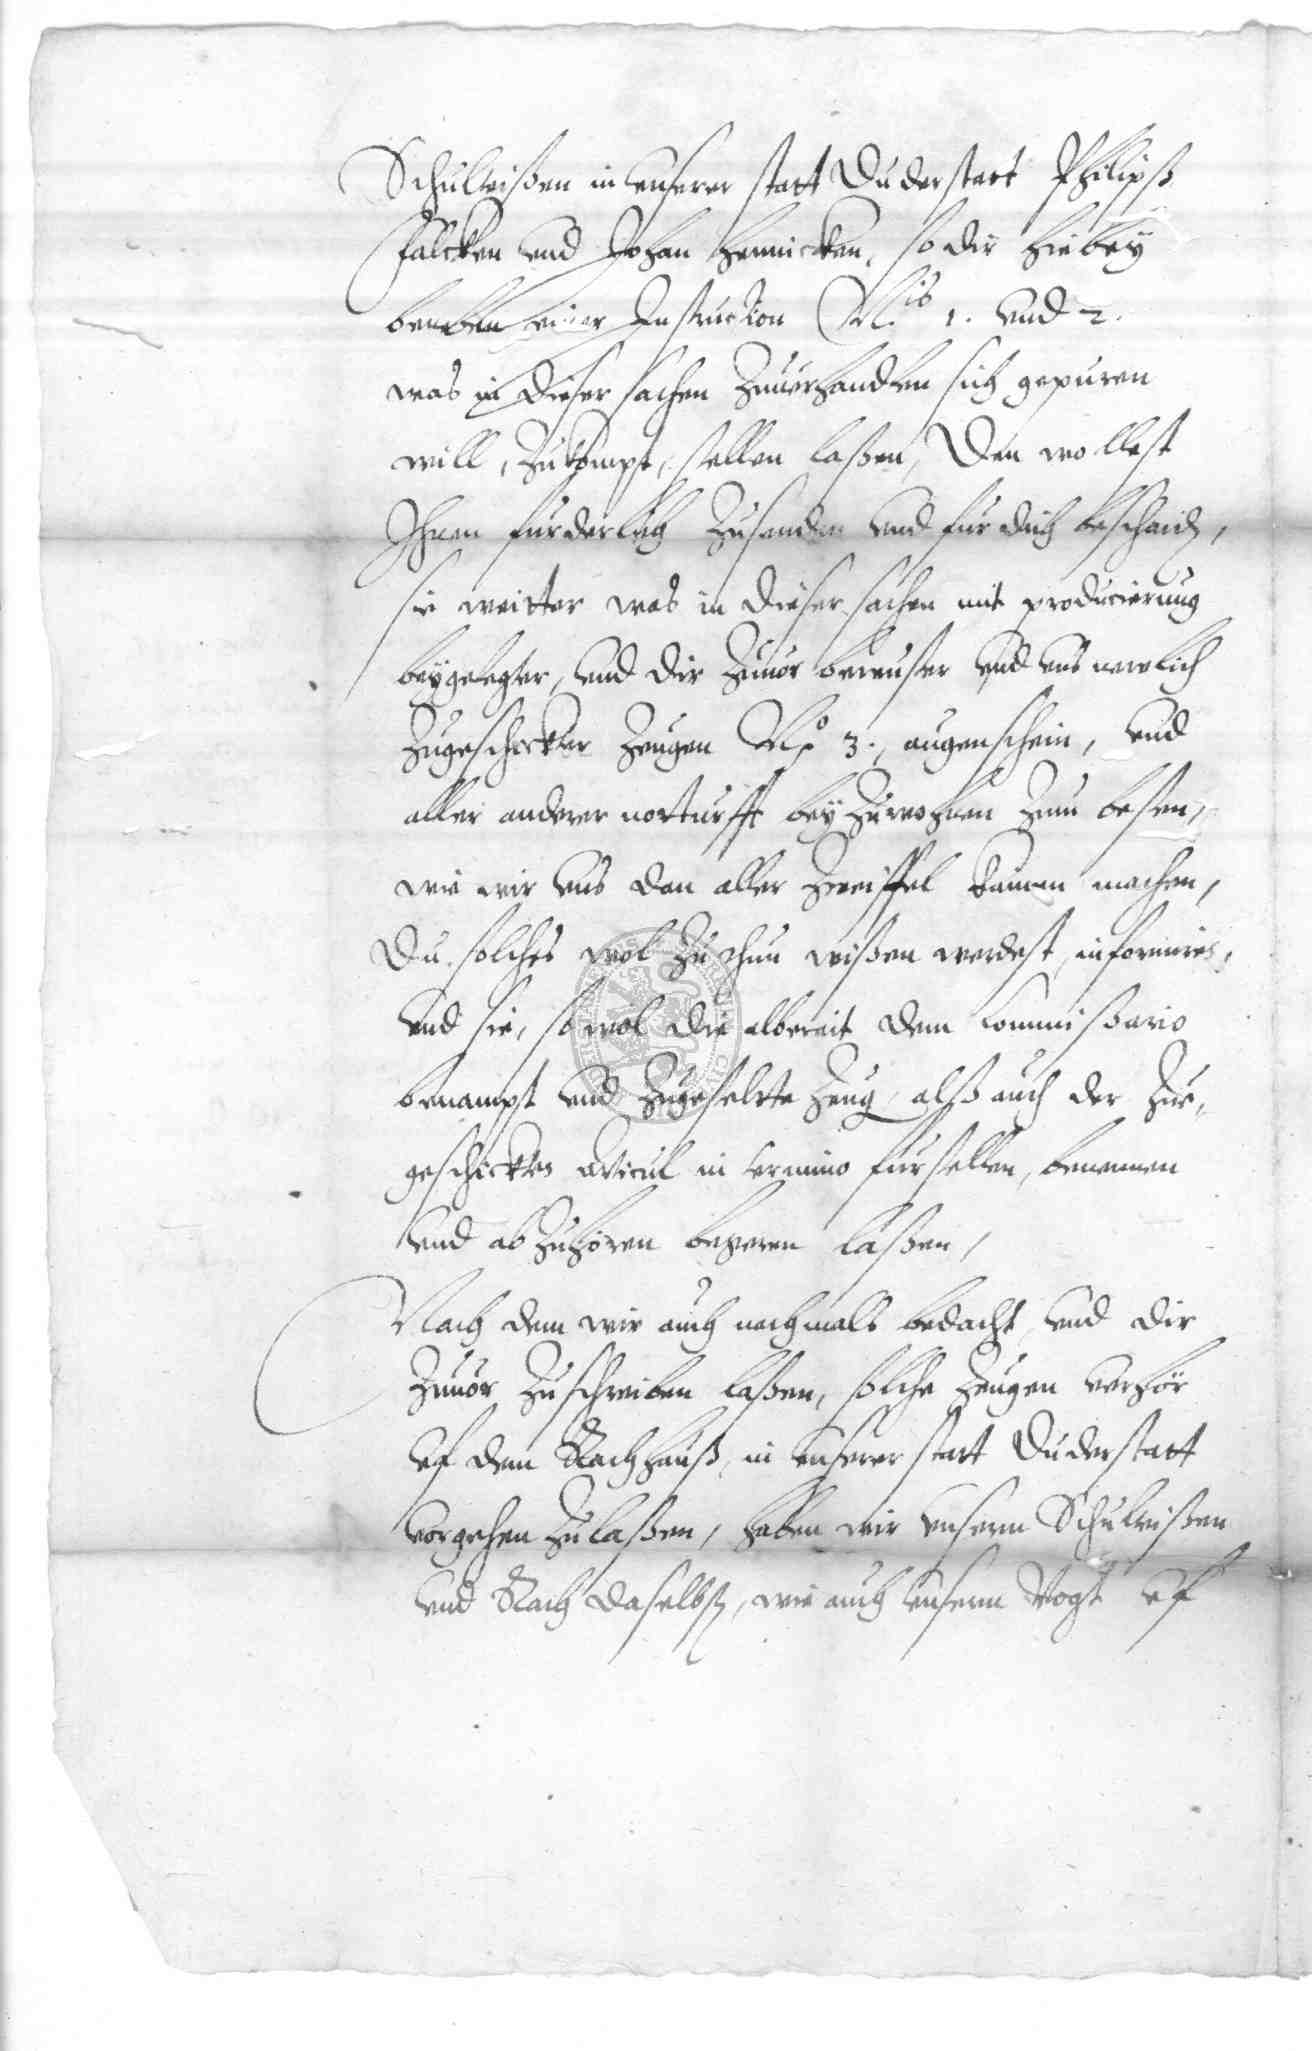 Schulteißen in unserer statt Duderstatt Philipß
Falcken und Johan Hennicken, so dir hiebey
beneben einer Instruction N.is 1. und 2.
was in dieser sachen Zuverhandlen sich gepuren
will, Zukompt, stellen laßen, Den wollest
Ihnen furderlich Zusenden und fur dich bescheid,
sie weitter was in dieser sachen mit producierung
beygelegter, und dir Zuvor bewuster und uns newlich
Zugeschickter Zeugen No 3., augenschein, und
aller anderer notturfft bey Zuwohnen Zum besten,
wie wir uns dan aller Zweiffel kainen machen,
Du solches wol Zuthun wißen werdest, informirn,
und sie, so wol die albereit dem Commissario
benampt und Zugestelte Zeug, alß auch der Zue,
geschickten articul in termino furstellen, benennen
und ab Zuhören begeren laßen,
Nach dem wir auch nachmals bedacht, und dir
Zuvor Zuschreiben laßen, solche Zeugen verhör
uf dem Rathhauß, in unserer statt Duderstatt
vorgehen Zulaßen, haben wir unserm Schulteißen
und Rath daselbst, wie auch unserm Vogt uf